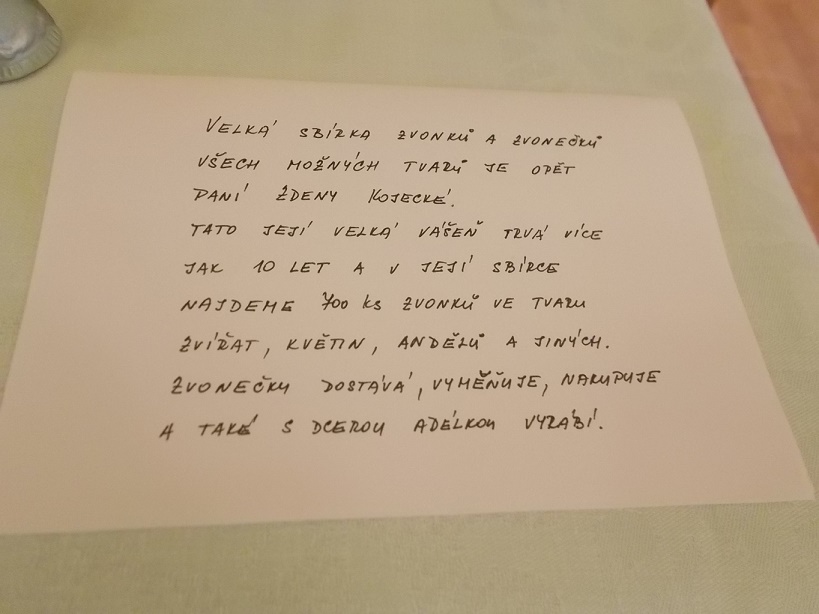 VELKÁ SBÍRKA ZVONKŮ A ZVONEČKŮ
VŠECH MOŽNÝCH TVARŮ JE OPĚT
PANÍ ZDENY KOJECKÉ.
TATO JEJÍ VELKÁ VÁŠEŇ TRVÁ VÍCE
JAK 10 LET A V JEJÍ SBÍRCE
NAJDEME 700 ks ZVONKŮ VE TVARU
ZVÍŘAT, KVĚTIN, ANDĚLŮ A JINÝCH.
ZVONEČKY DOSTÁVÁ, VYMĚŇUJE, NAKUPUJE
A TAKÉ S DCEROU ADÉLKOU VYRÁBÍ.